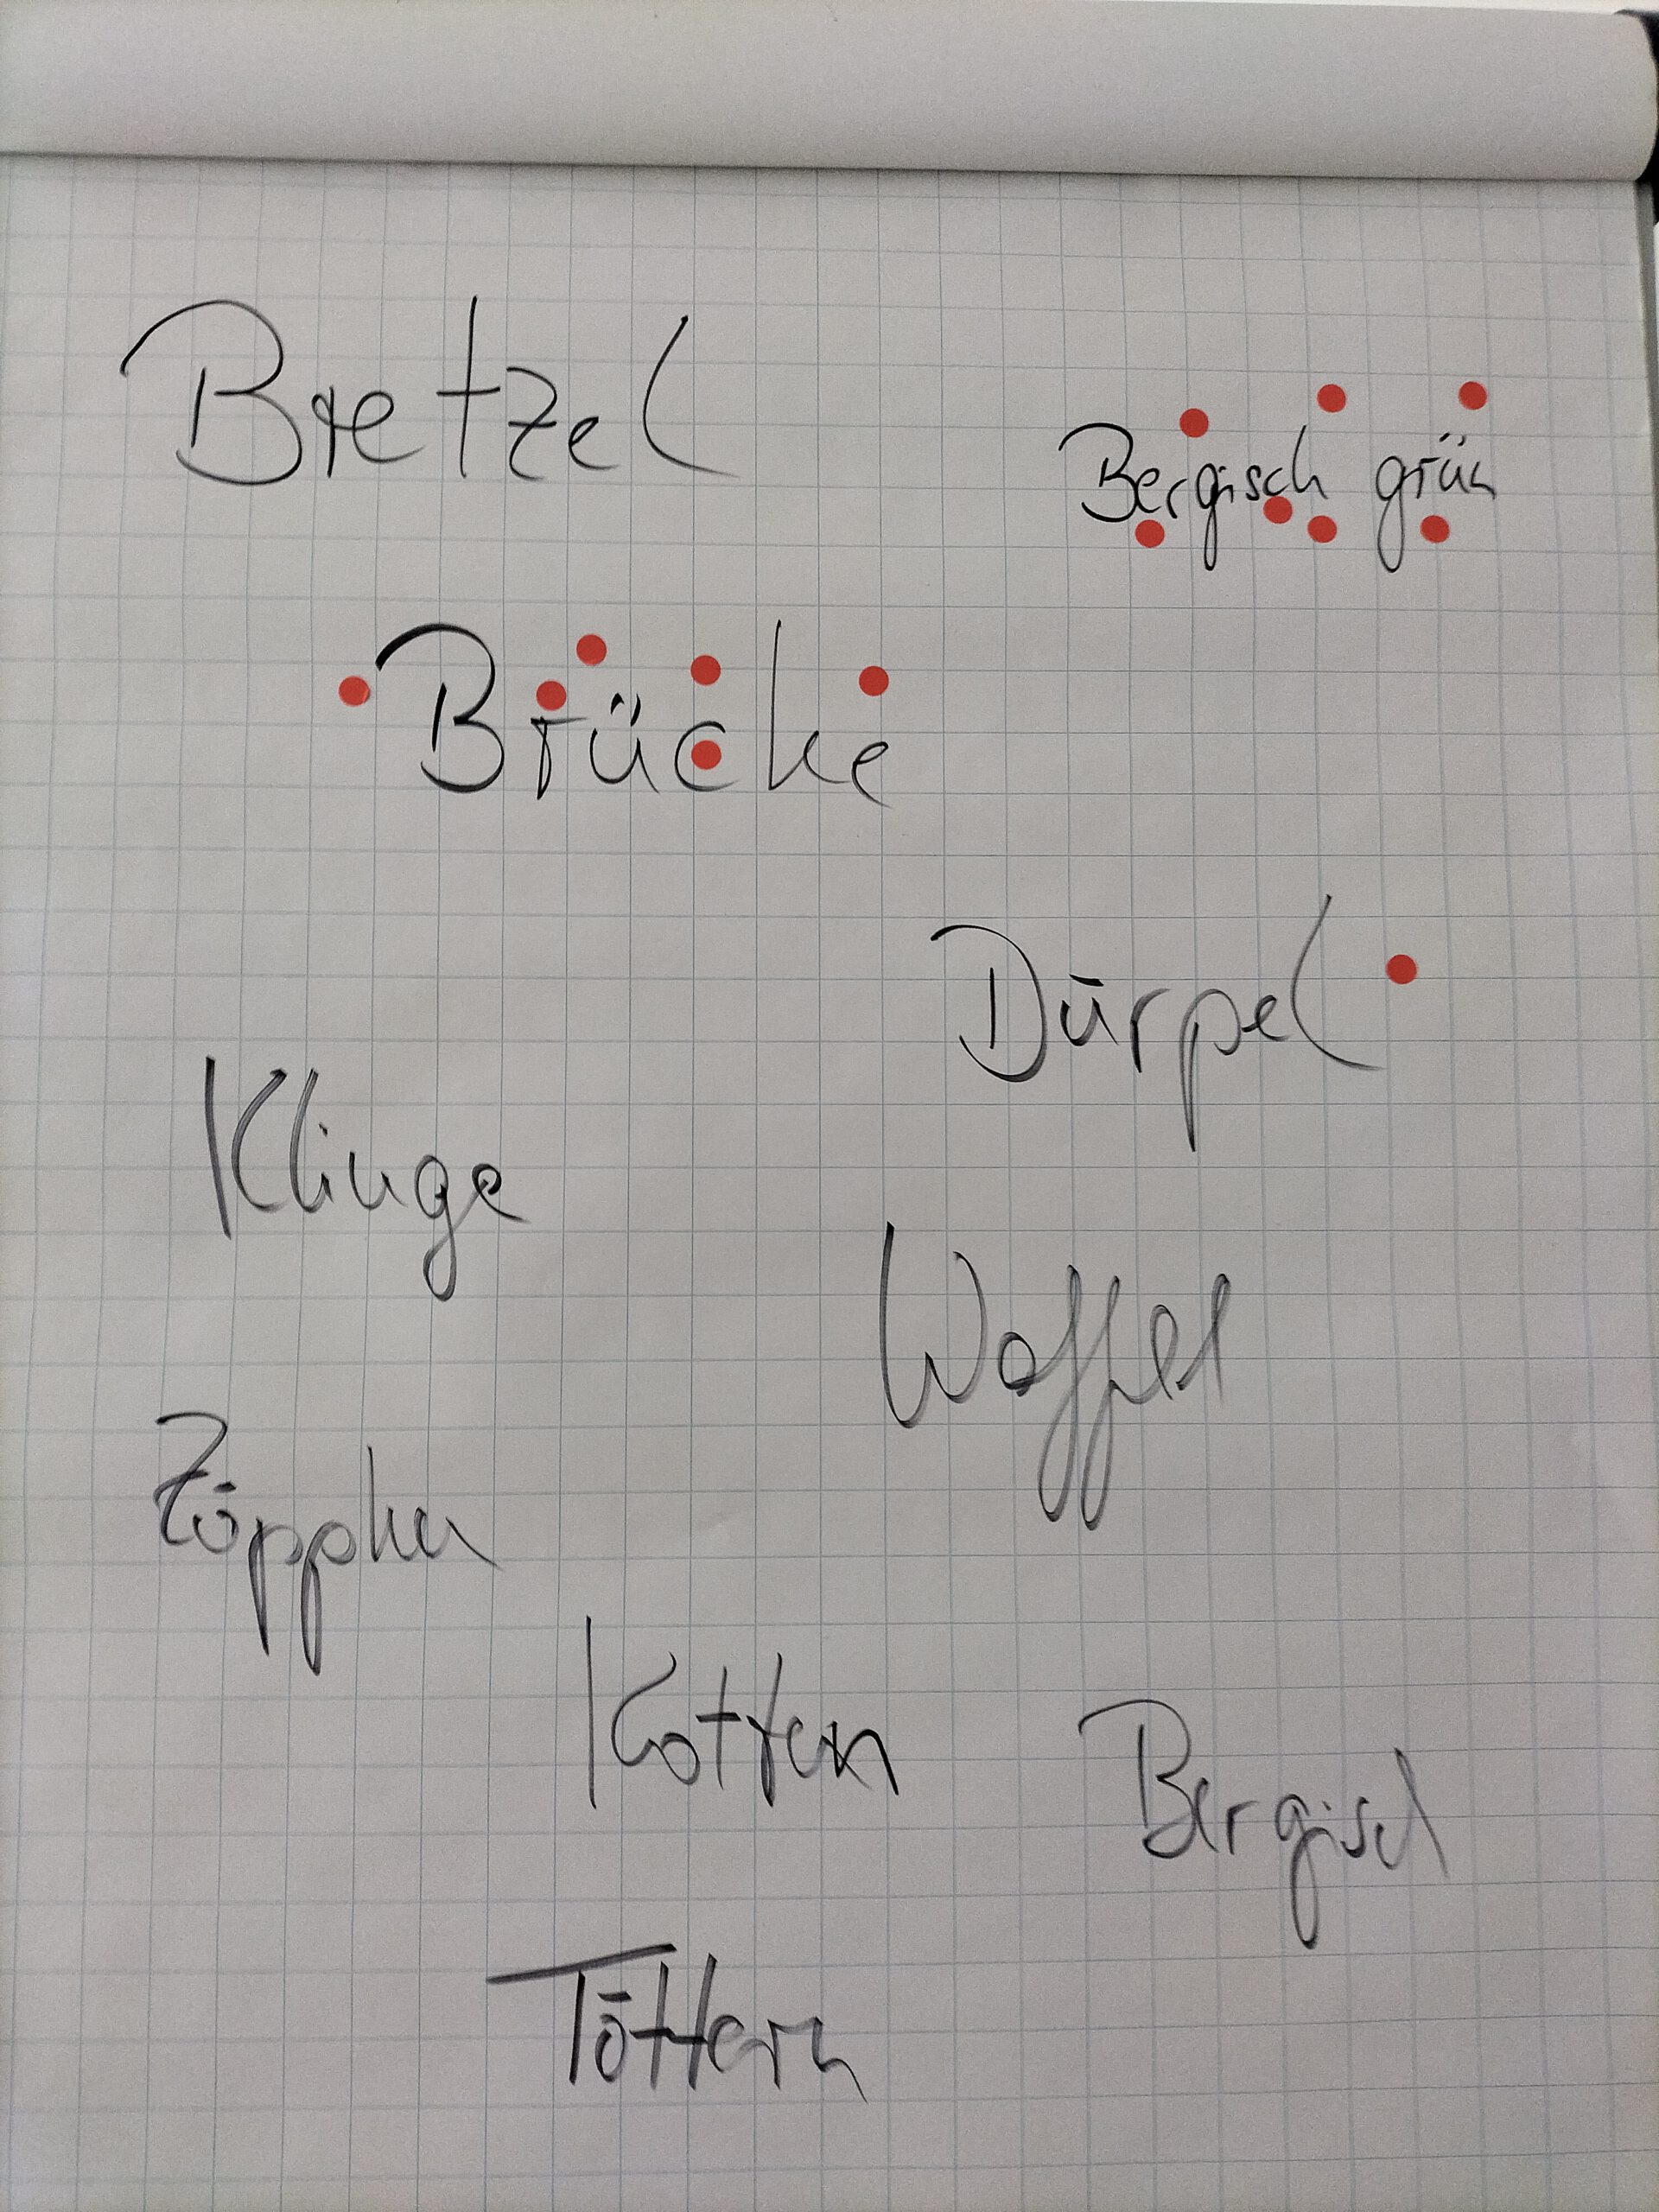 Bretzel
Bergisch grün
Brücke
Dürpel
Klinge
Waffel
Zöppken
Kotten
Bergisch
Töttern